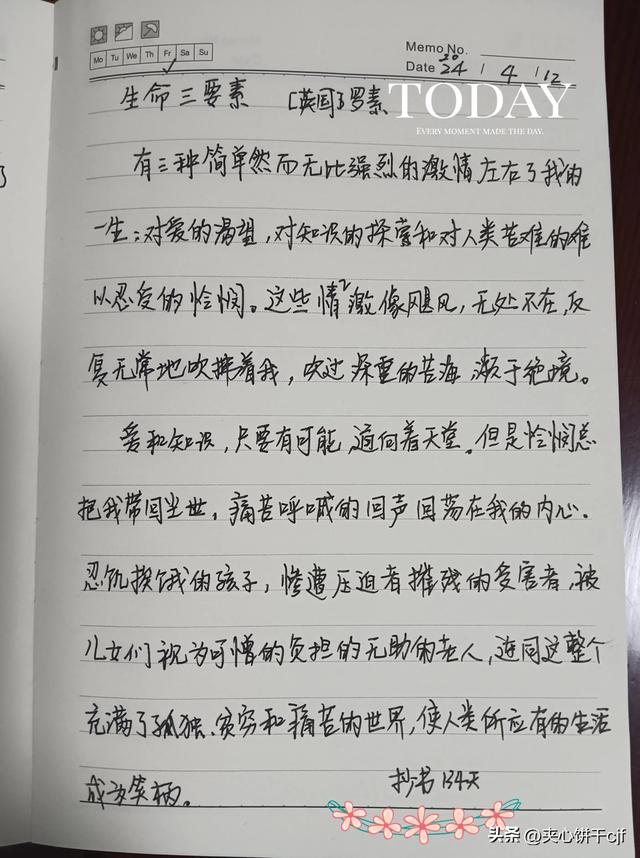 Mo Tu We Th Fr Sa Su
Memo No.
Date 2024 / 4 / 12
TODAY
EVERY MOMENT MADE THE DAY.
生命三要素 [英国]罗素
有三种简单然而无比强烈的激情左右了我的
一生:对爱的渴望,对知识的探索和对人类苦难的难
以忍受的怜悯。这些情激像飓风,无处不在,反
复无常地吹拂着我,吹过深重的苦海,濒于绝境。
爱和知识,只要有可能,通向着天堂。但是怜悯总
把我带回尘世,痛苦呼喊的回声回荡在我的内心.
忍饥挨饿的孩子,惨遭压迫者摧残的受害者,被
儿女们视为可憎的负担的无助的老人,连同这整个
充满了孤独、贫穷和痛苦的世界,使人类所应有的生活
成为笑柄。
抄书134天
头条@夹心饼干cjf